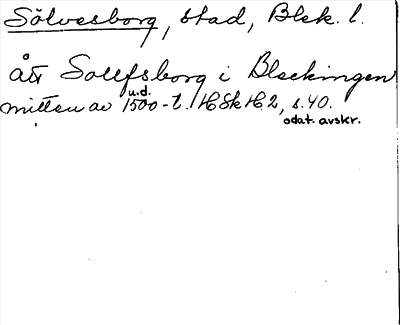 Sölvesborg, stad, Blek. l.
åt Solffsborg i Bleckingen
u.d.
mitten av 1500-t. HSkH 2, s. 40.
odat. avskr.